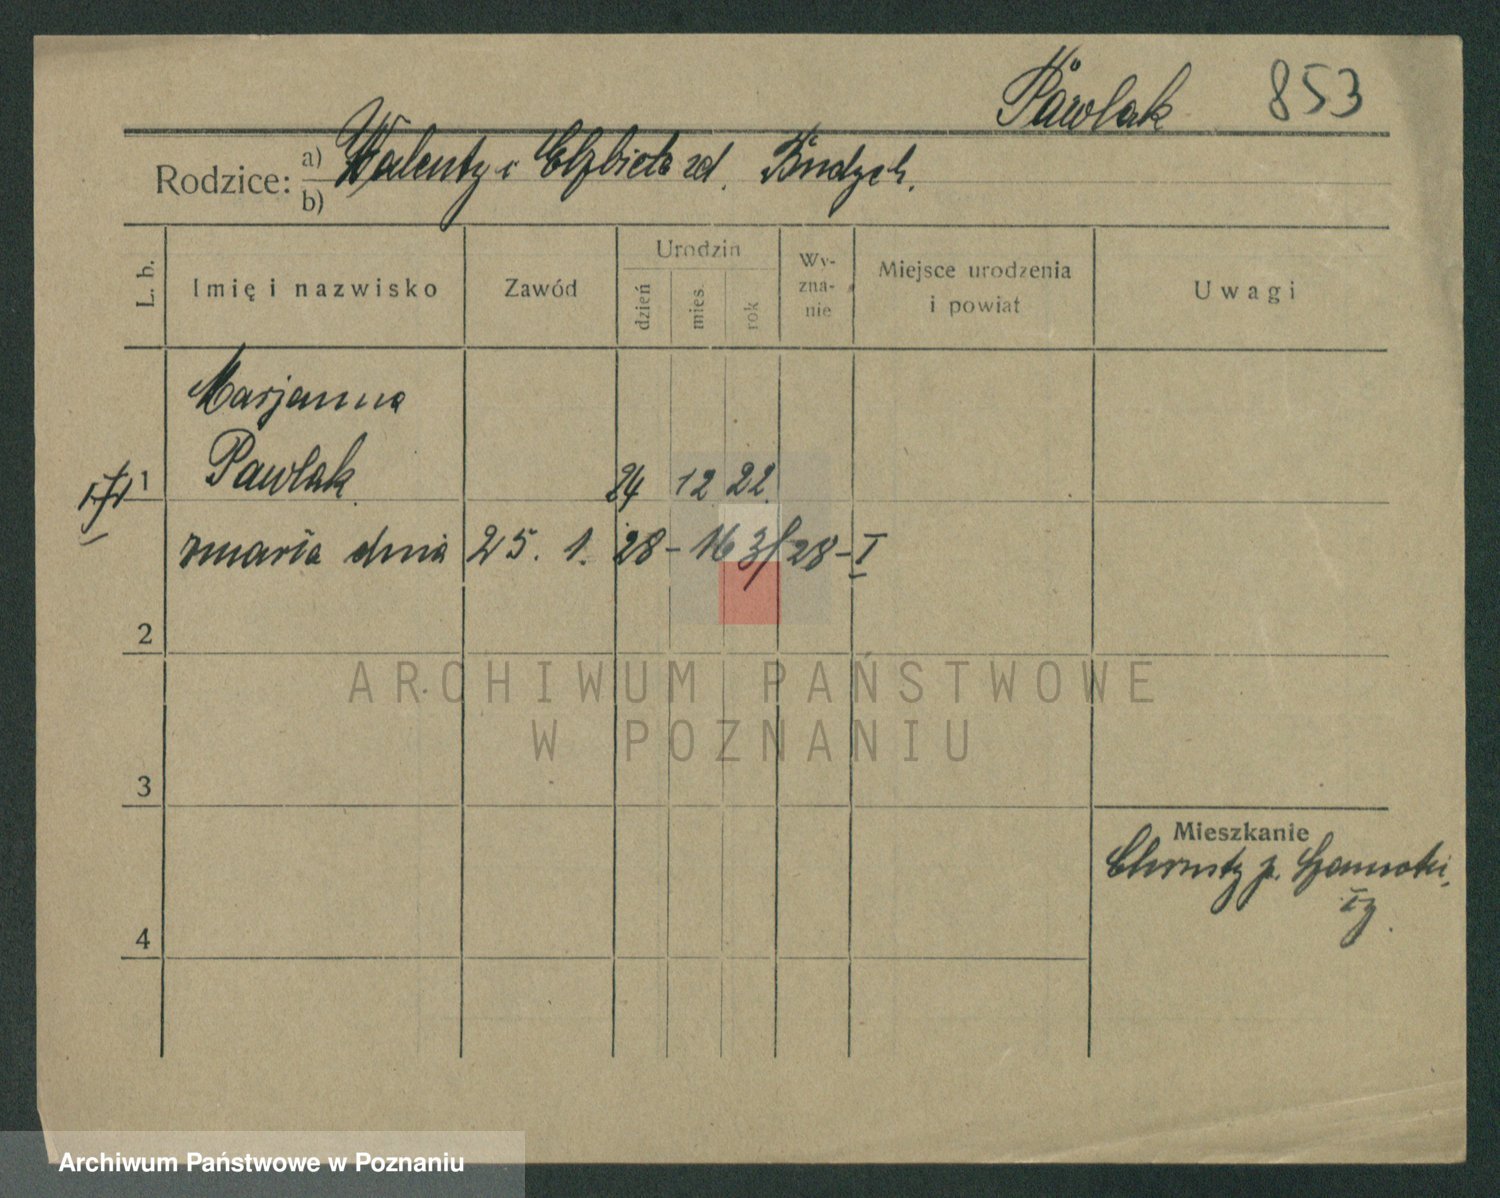 Pawlak 853
Rodzice: a) Walenty i Elżbieta zd.
b)
L. b. Imię i nazwisko Zawód Urodzin dzień mies. rok Wy-zna-nie Miejsce urodzenia i powiat Uwagi
Marjanna
1 Pawlak 24 12 22
zmarła dnia 25. 1. 28 - 16 31/28 - I
2
ARCHIWUM PAŃSTWOWE
W POZNANIU
3
Mieszkanie
4
Archiwum Państwowe w Poznaniu